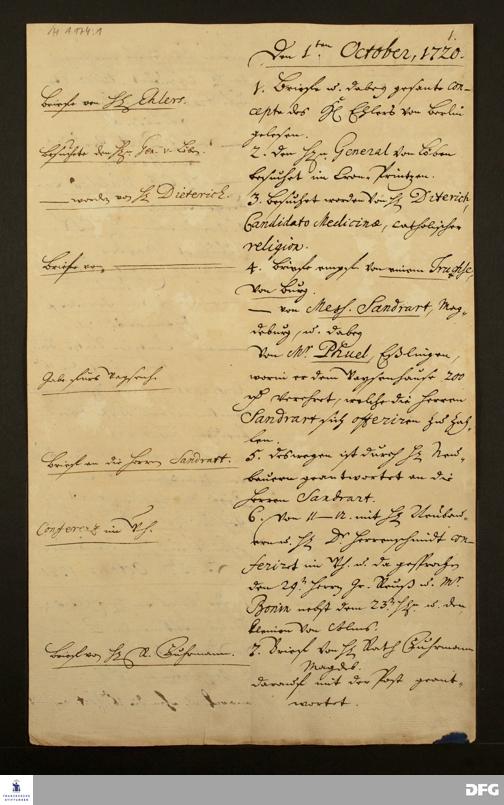 1.
Den 1ten October, 1720.
Briefe von H. Ehlers.
1. Briefe u. dabey gesante Con-
cepte des H. Ehlers von Berlin
gelesen.
Besuchte den H. Gen. v. Löben.
2. Den H. General von Löben
besuchet im Cron-Printzen.
— worden von H. Dieterich.
3. besuchet worden von H. Diterich,
Candidato Medicinæ, catholischer
religion.
Briefe von
4. Briefe empf. von einem
von Burg.
— von Mess. Sandrart, Mag-
deburg, u. dabey
von Mr. Phuel, Eßlingen,
Gabe fürs Waysenh.
worin er dem Waysenhause 200
verehret, welche die Herren
Sandrart sich offeriren zu zah-
len.
Briefe an die Herrn Sandrart.
5. deswegen ist durch H. Neu-
bauern geantwortet an die
Herren Sandrart.
Conferenz im
6. Von 11–12. mit H. Neubau-
ern u. H. Dr Herrnschmidt con-
feriret im u. da gesprochen
den 29. Herrn Gr. Reuß u. Mr.
Bonin nebst dem 23. u. den
kleinen von
Brief von H. R. Cuhrmann.
7. Brief von H. Rath Cuhrmann
Magdeb.
darauf mit der Post geant-
wortet.
FRANCKESCHE
STIFTUNGEN
DFG